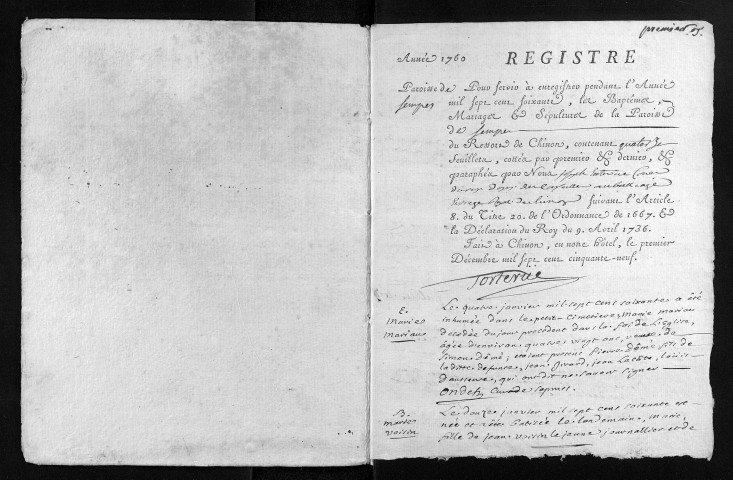 premier
Année 1760 REGISTRE
Paroisse de
Sepmes
Pour servir à enregistrer pendant l'Année
mil sept cent soixante, les Baptêmes,
Mariages & Sépultures de la Paroisse
de Sepmes
du Ressort de Chinon, contenant quatorze
feuillets, cottés par premier & dernier, &
paraphés par Nous
suivant l'Article
8. du Titre 20. de l'Ordonnance de 1667. &
la Déclaration du Roy du 9. Avril 1736.
Fait à Chinon, en notre hôtel, le premier
Décembre mil sept cent cinquante-neuf.
Torterüe
Marie
Mariau
Le quatre janvier mil sept cent soixante a été
inhumée dans le petit cimetiere, Marie Mariau
decedée du jour precedent dans la foi de l'eglise,
âgée d'environ quatre vingt ans, veuve de
Simon démé, etoient presens Pierre démé fils de
laditte defunte, jean Girard, jean
d'auxerre, qui ont dit ne savoir signer
Curé de Sepmes
B.
Marie
voisin
Le douze janvier mil sept cent soixante est
née et a été batisée le landemain, Marie,
fille de jean voisin le jeune journallier et de